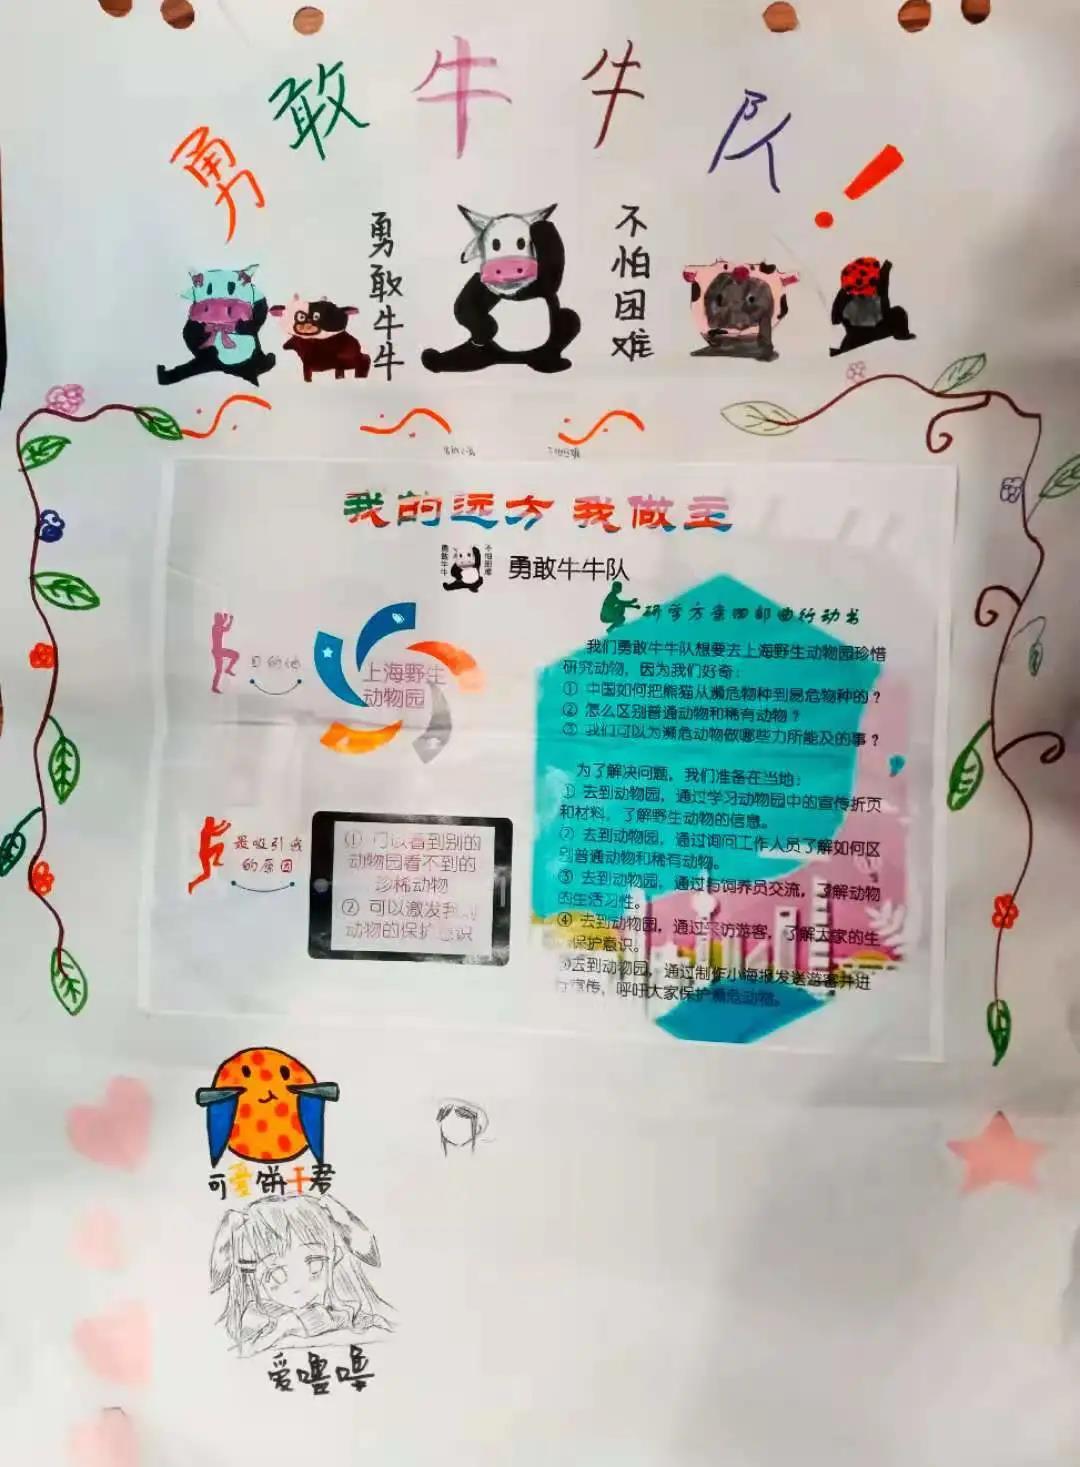 勇敢牛牛队!
勇敢牛牛
不怕困难
我的远方 我做主
勇敢牛牛
不怕困难
勇敢牛牛队
目的地
上海野生
动物园
研学方案四部曲行动书
我们勇敢牛牛队想要去上海野生动物园珍惜
研究动物，因为我们好奇：
① 中国如何把熊猫从濒危物种到易危物种的？
② 怎么区别普通动物和稀有动物？
③ 我们可以为濒危动物做哪些力所能及的事？
为了解决问题，我们准备在当地：
① 去到动物园，通过学习动物园中的宣传折页
和材料，了解野生动物的信息。
② 去到动物园，通过询问工作人员了解如何区
别普通动物和稀有动物。
③ 去到动物园，通过与饲养员交流，了解动物
的生活习性。
④ 去到动物园，通过采访游客，了解大家的生
保护意识。
⑤去到动物园，通过制作小海报发送游客并进
行宣传，呼吁大家保护濒危动物。
最吸引我
的原因
① 可以看到别的
动物园看不到的
珍稀动物
② 可以激发我
动物的保护意识
可爱饼干君
爱噜噜